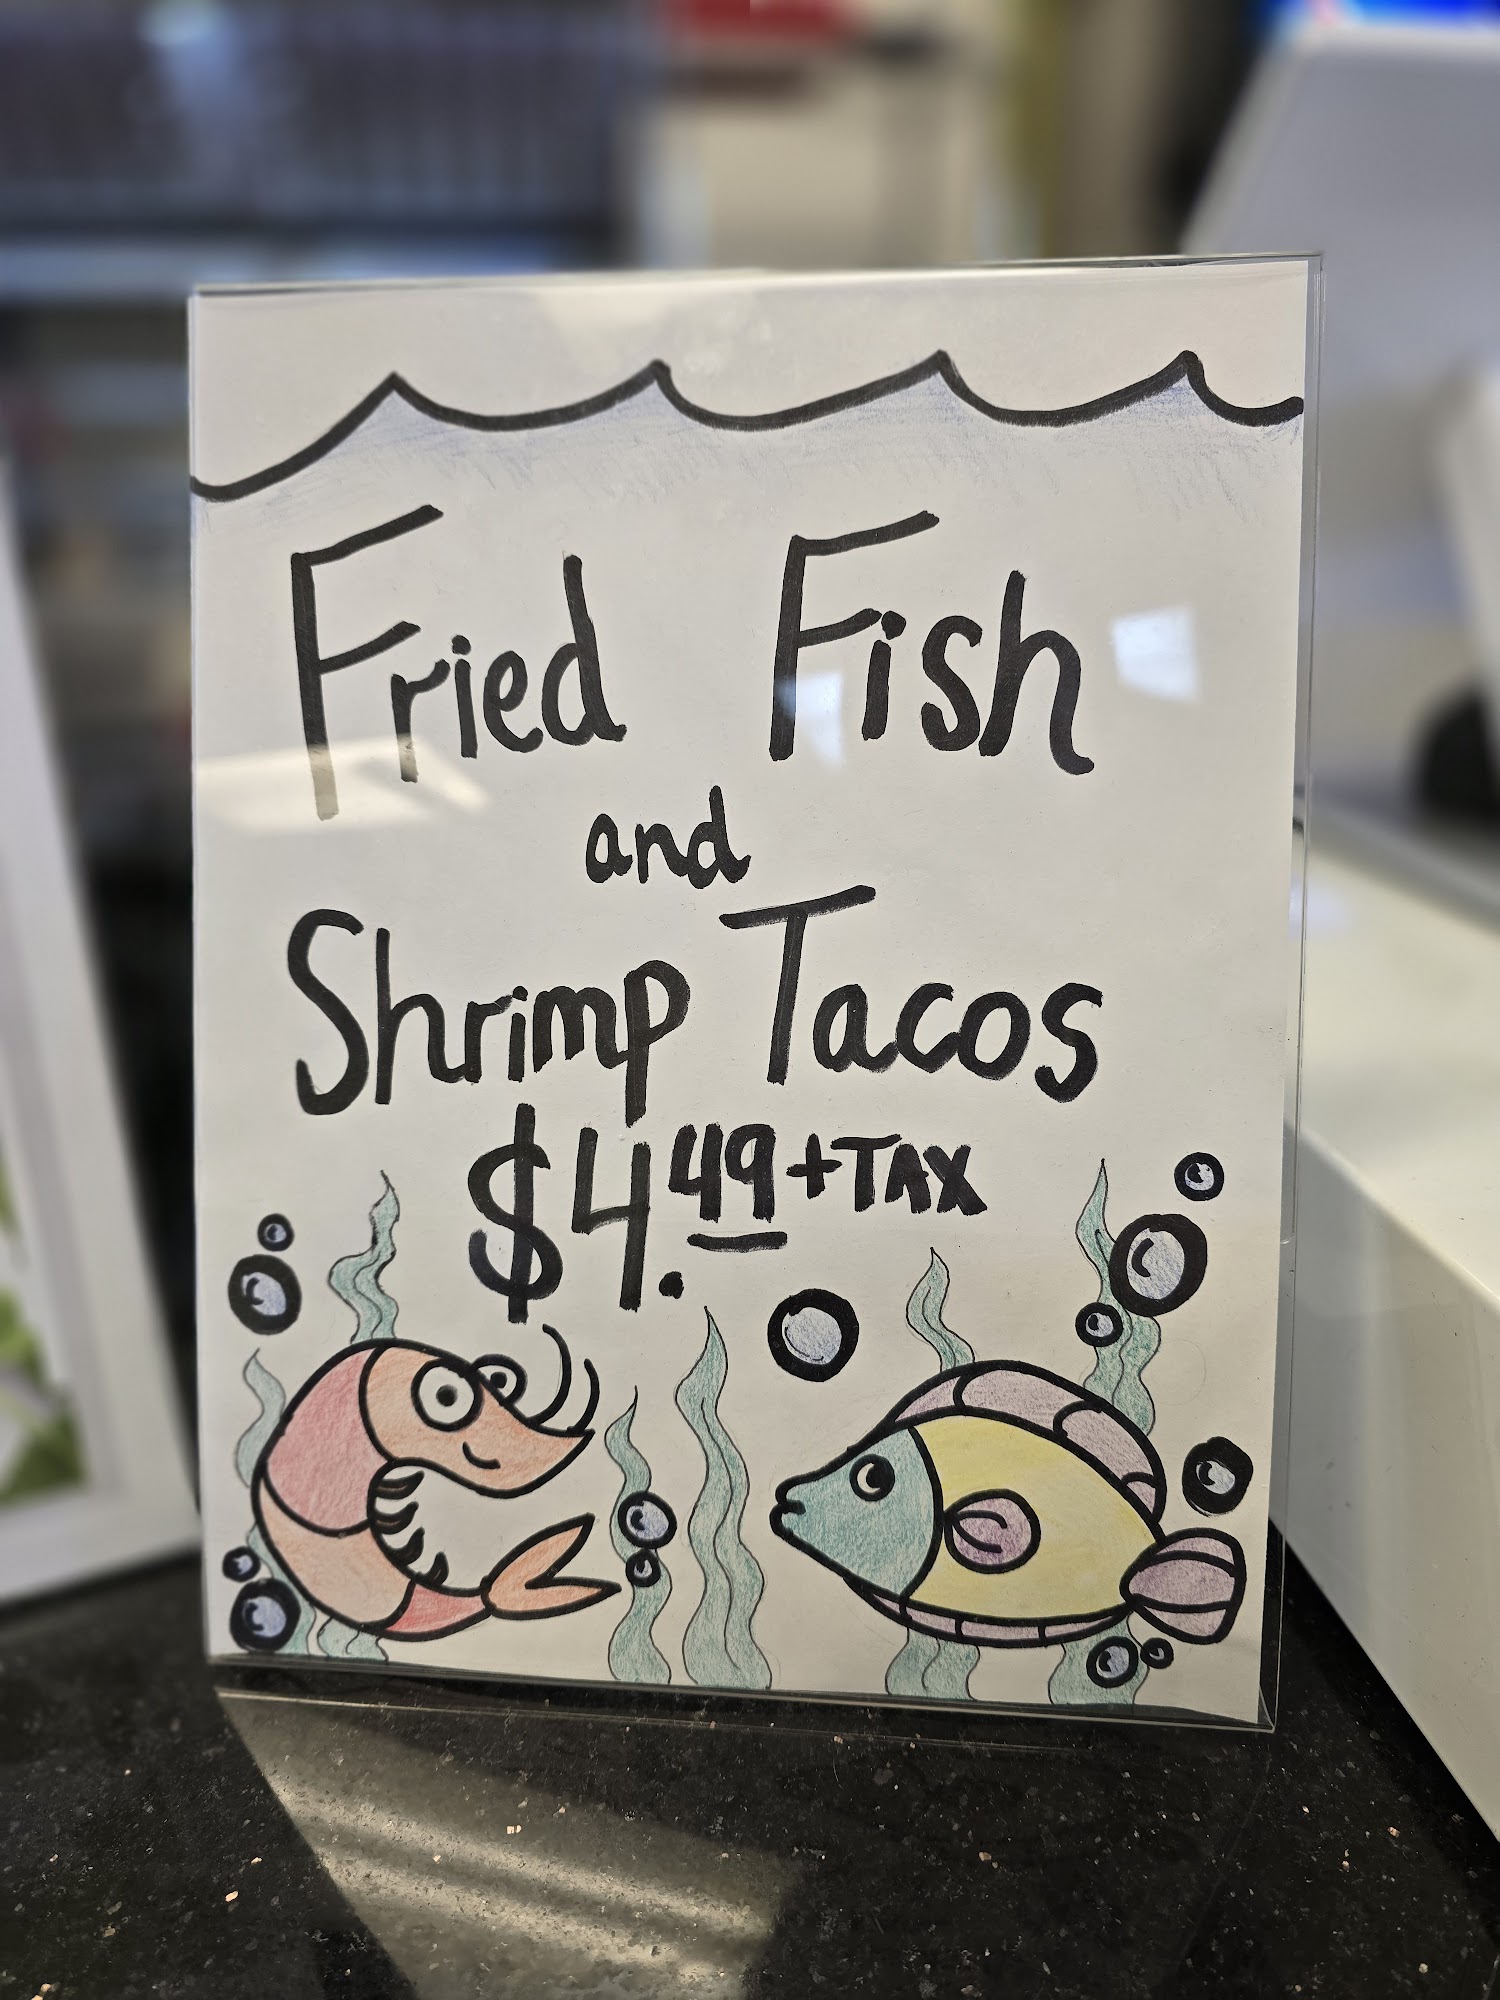 Fried Fish
and
Shrimp Tacos
$4.49 +TAX